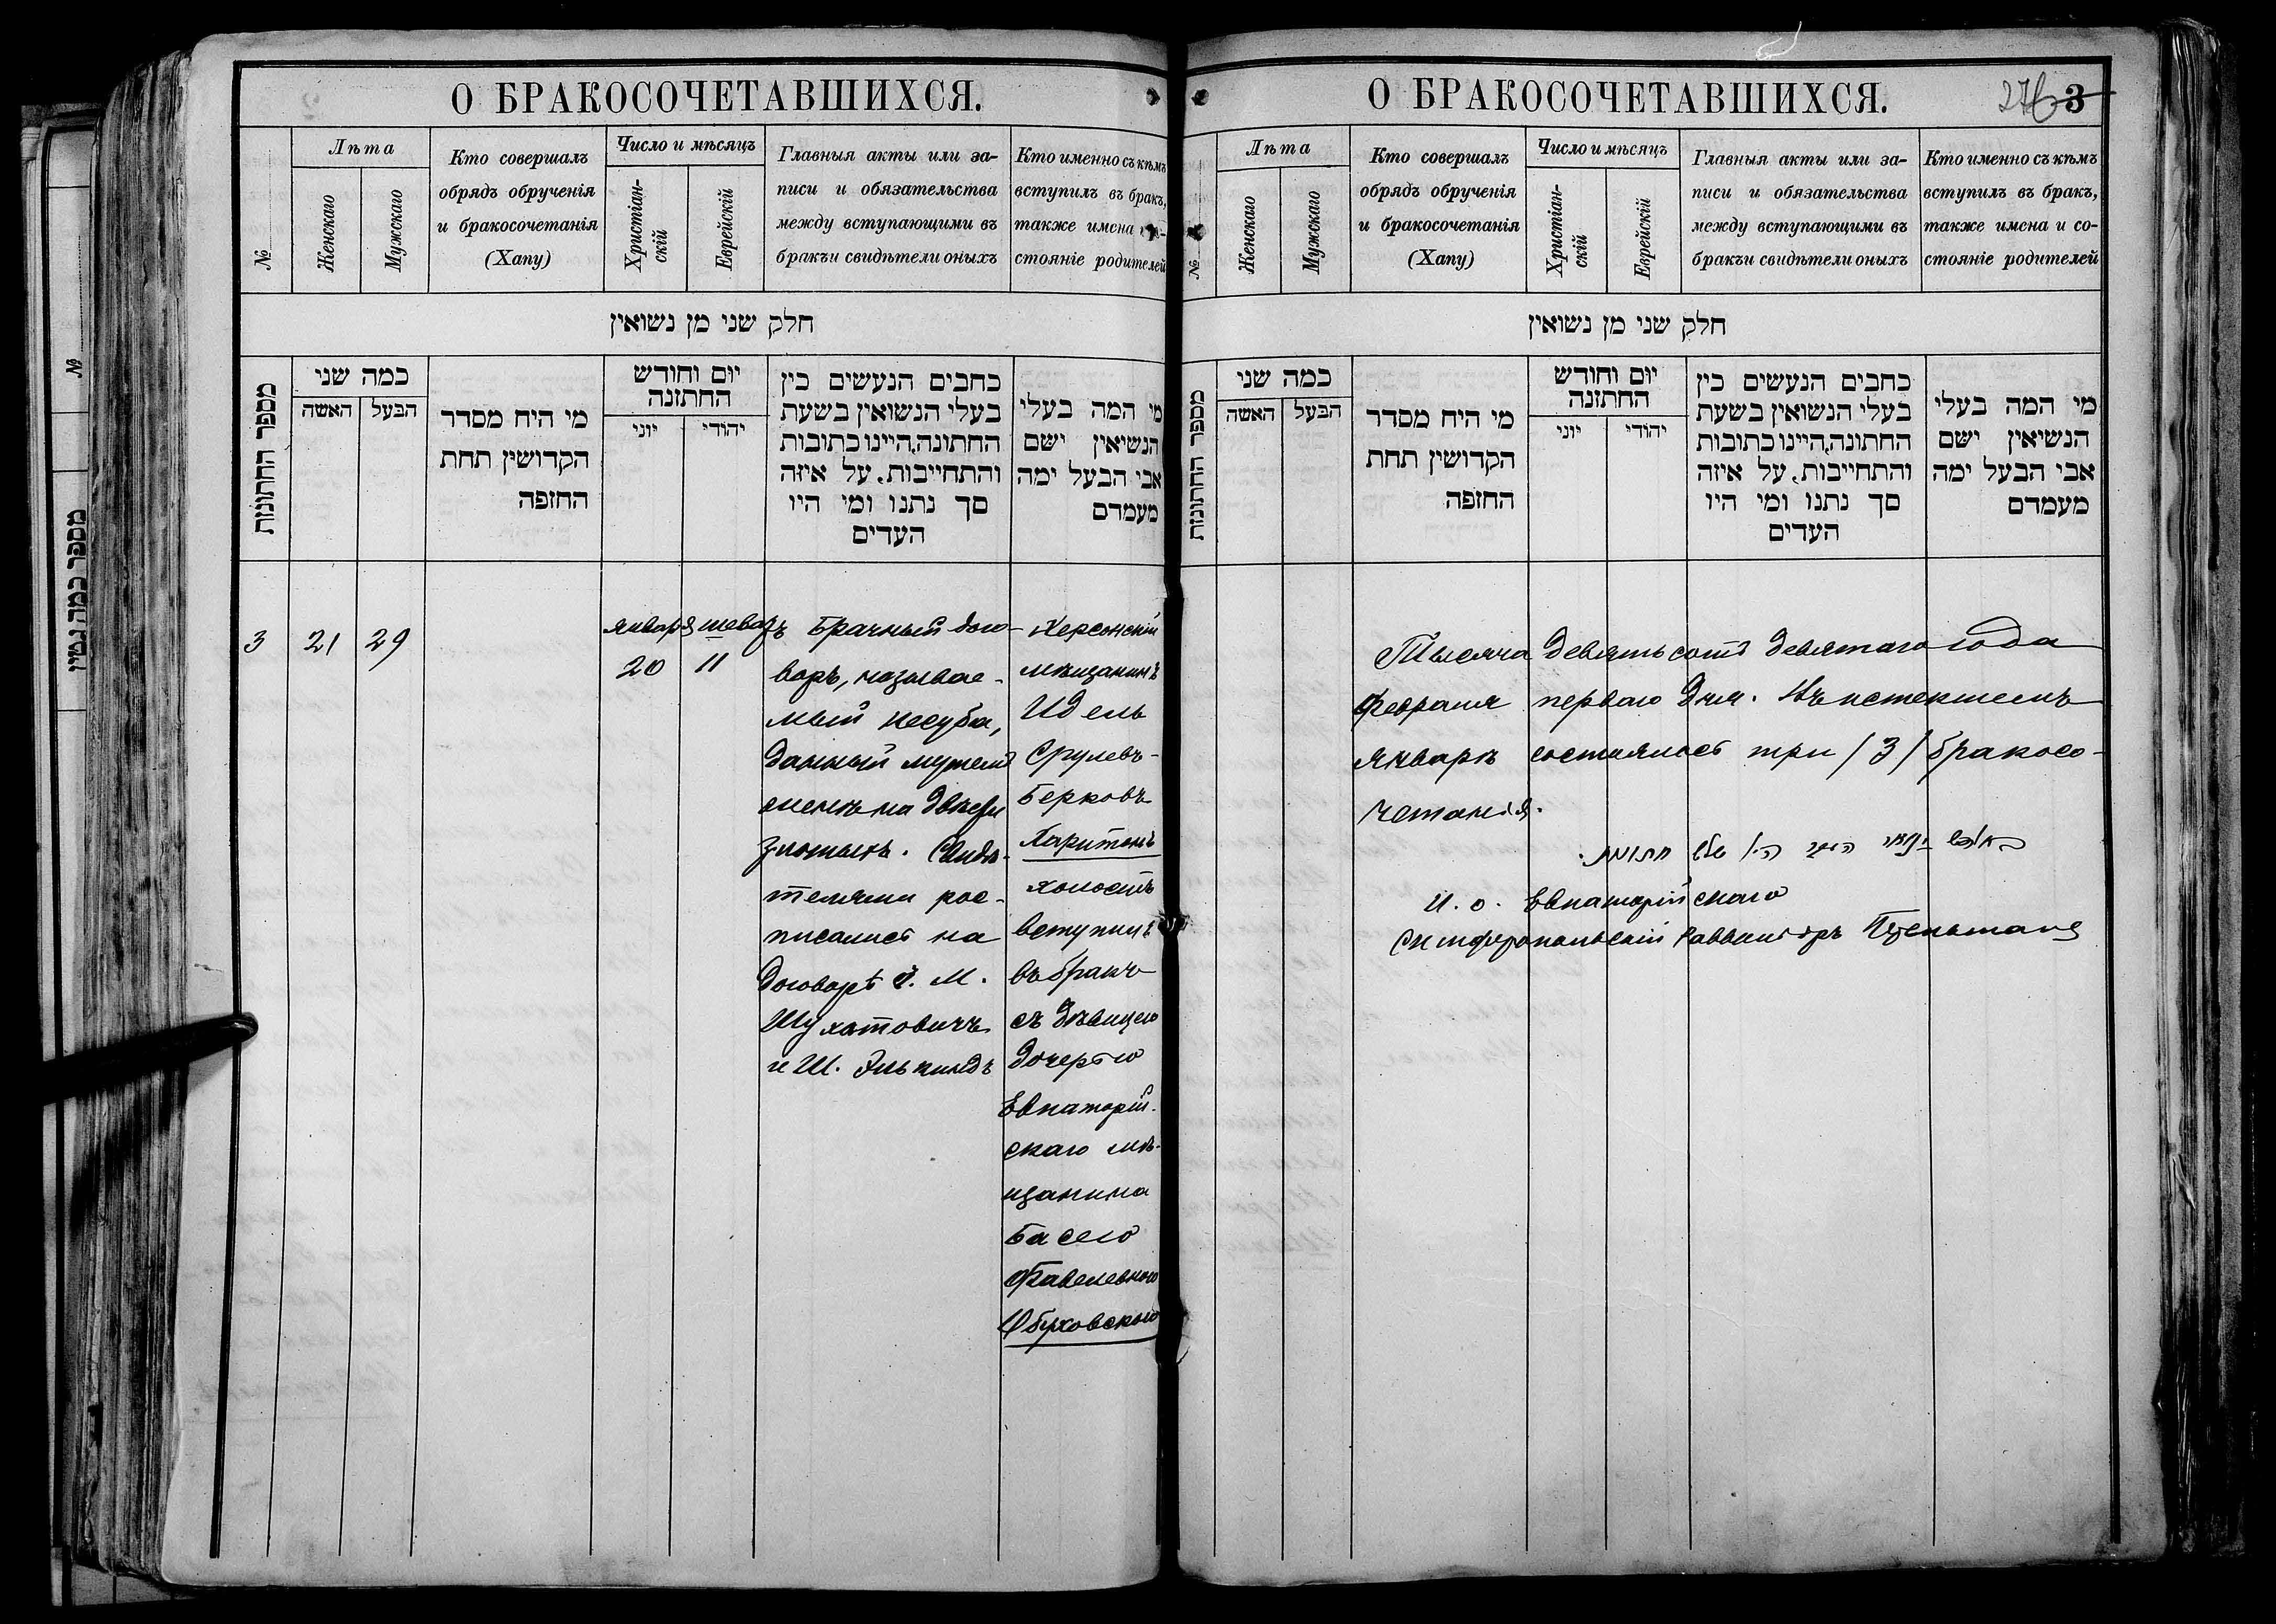 О БРАКОСОЧЕТАВШИХСЯ.
№
Лѣта
Женскаго
Мужскаго
Кто совершалъ
обрядъ обрученія
и бракосочетанія
(Хапу)
Число и мѣсяцъ
Христіан-
скій
Еврейскій
Главныя акты или за-
писи и обязательства
между вступающими въ
бракъи свидѣтели оныхъ
Кто именно съ кѣмъ
вступилъ въ бракъ,
также имена
стояніе родителей
חלק שני מן נשואין
מספר החתונות
כמה שני
האשה
הבעל
מי היה מסדר
הקדושין תחת
החופה
יום וחודש
החתונה
יוני
יהודי
כתבים הנעשים בין
בעלי הנשואין בשעת
החתונה,היינו כתובות
והתחייבות, על איזה
סך נתנו ומי היו
העדים
מי המה בעלי
הנשיאין ישם
אבי הבעל ימה
מעמדם
3
21
29
января
20
шеватъ
11
Брачный дого-
воръ, называе-
мый кесуба,
данный мужемъ
женѣ на двѣсти
злотыхъ. Свидѣ-
телями рос-
писались на
договорѣ
Шухатовичъ
и Ш. Элькиндъ
Херсонскій
мѣщанинъ
Идель
Срулевъ-
Берковъ
Харитонъ
холостъ
вступилъ
въ бракъ
съ дѣвицею
дочерью
Евпаторій-
скаго мѣ-
щанина
Басею
Обуховскою
О БРАКОСОЧЕТАВШИХСЯ.
276 3
№
Лѣта
Женскаго
Мужскаго
Кто совершалъ
обрядъ обрученія
и бракосочетанія
(Хапу)
Число и мѣсяцъ
Христіан-
скій
Еврейскій
Главныя акты или за-
писи и обязательства
между вступающими въ
бракъи свидѣтели оныхъ
Кто именно съ кѣмъ
вступилъ въ бракъ,
также имена и со-
стояніе родителей
חלק שני מן נשואין
מספר החתונות
כמה שני
האשה
הבעל
מי היה מסדר
הקדושין תחת
החופה
יום וחודש
החתונה
יוני
יהודי
כתבים הנעשים בין
בעלי הנשואין בשעת
החתונה,היינו כתובות
והתחייבות, על איזה
סך נתנו ומי היו
העדים
מי המה בעלי
הנשיאין ישם
אבי הבעל ימה
מעמדם
Тысяча девятьсотъ девятаго года
Февраля перваго дня. Въ истекшемъ
Январѣ состоялось три /3/ бракосо-
четанія.
И. о. Евпаторійскаго
Симферопольскій Раввинъ
№
מספר כמה גטין